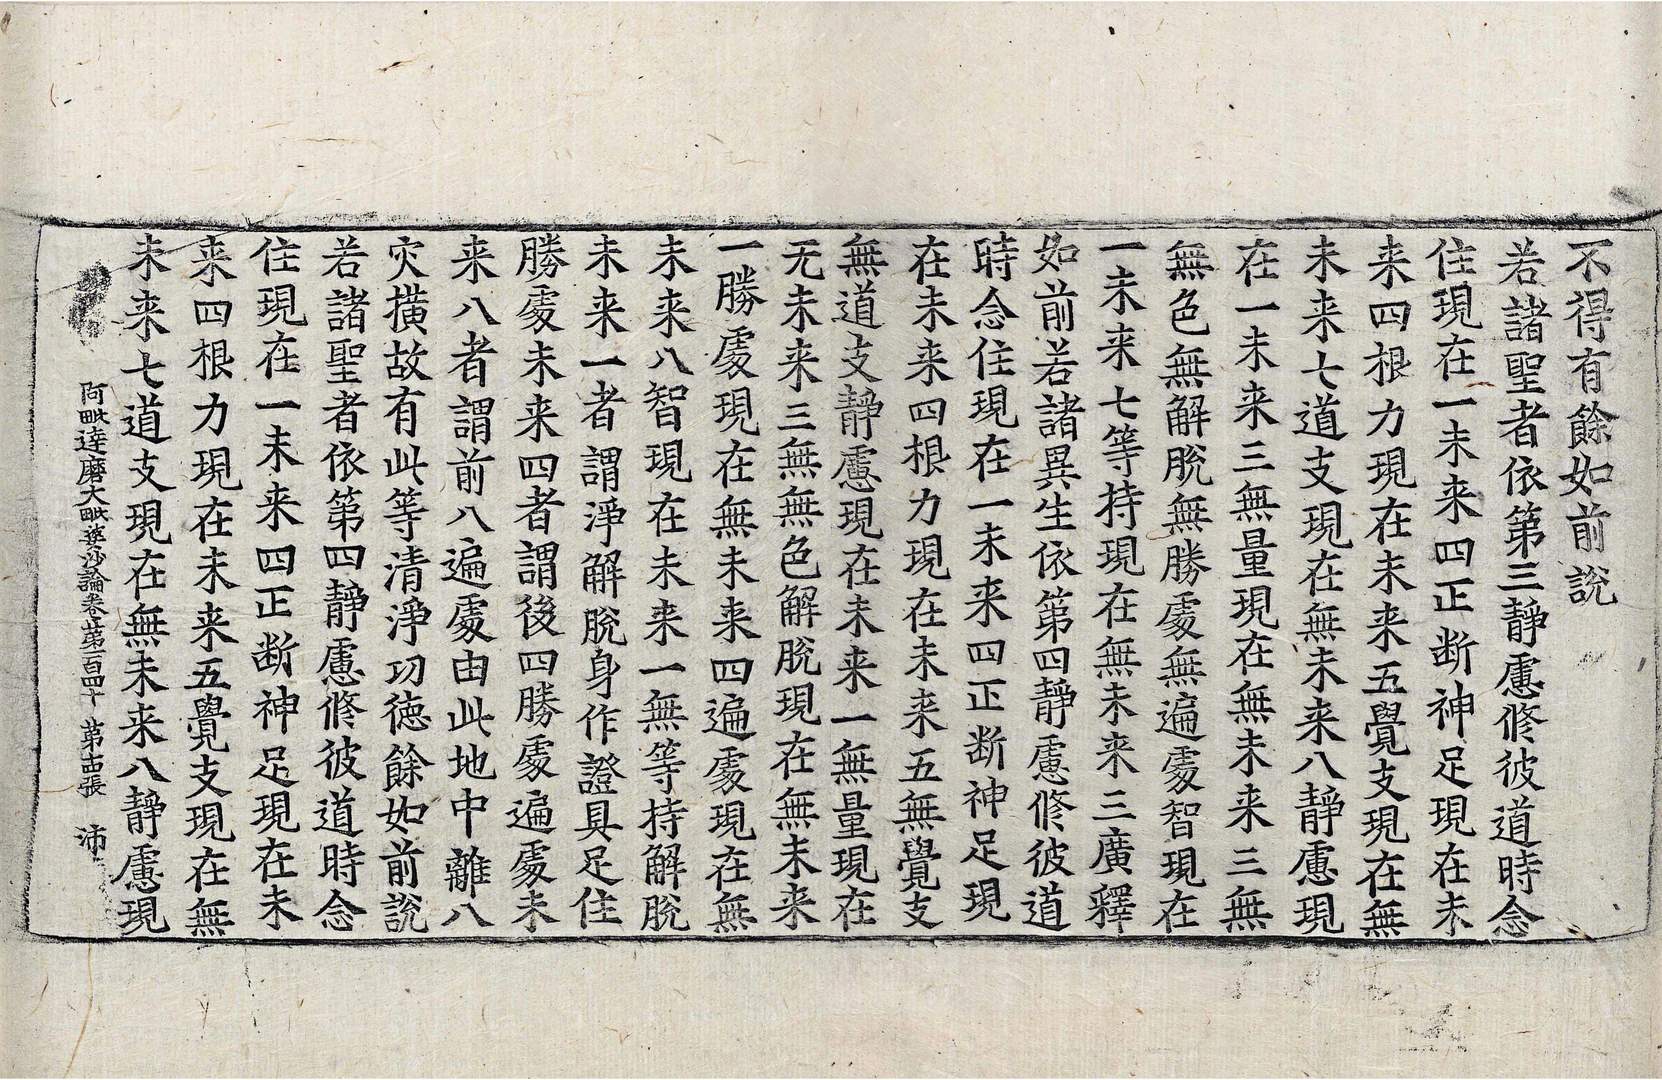 不得有餘如前說
若諸聖者依第三靜慮修彼道時念
住現在一未来四正断神足現在未
来四根力現在未来五覺支現在無
未来七道支現在無未来八靜慮現
在一未来三無量現在無未来三無
無色無解脫無勝處無遍處智現在
一未来七等持現在無未来三廣釋
如前若諸異生依第四靜慮修彼道
時念住現在一未来四正断神足現
在未来四根力現在未来五無覺支
無道支靜慮現在未来一無量現在
无未来三無無色解脫現在無未来
一勝處現在無未来四遍處現在無
未来八智現在未来一無等持解脫
未来一者謂淨解脫身作證具足住
勝處未来四者謂後四勝處遍處未
来八者謂前八遍處由此地中離八
灾橫故有此等清淨功徳餘如前說
若諸聖者依第四靜慮修彼道時念
住現在一未来四正断神足現在未
来四根力現在未来五覺支現在無
未来七道支現在無未来八靜慮現
阿毗達磨大毗婆沙論卷第一百四十 第古張 沛